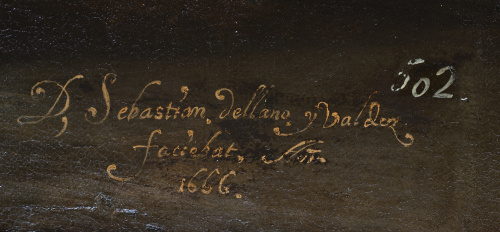 502.
D, Sebastian, dellano, y Valdez
faciebat,
1666.